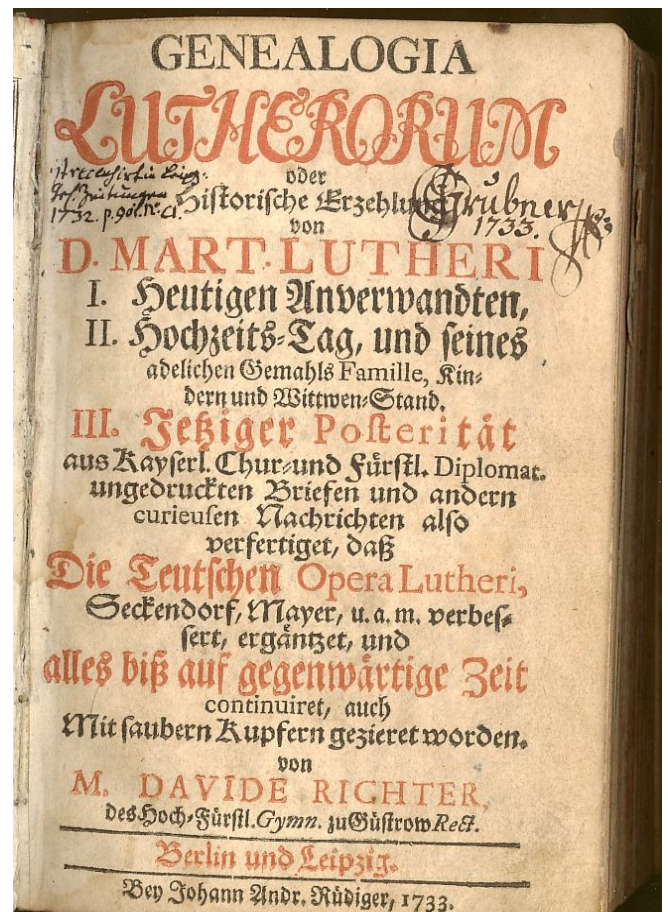 GENEALOGIA
LUTHERORUM
oder
Historische Erzehlung
von
Grubner
1733.
1732. p. 901.
D. MART. LUTHERI
I. Heutigen Anverwandten,
II. Hochzeits-Tag, und seines
adelichen Gemahls Famille, Kin-
dern und Wittwen-Stand.
III. Jetziger Posterität
aus Kayserl. Chur-und Fürstl. Diplomat.
ungedruckten Briefen und andern
curieusen Nachrichten also
verfertiget, daß
Die Teutschen Opera Lutheri,
Seckendorf, Mayer, u. a. m. verbes-
sert, ergäntzet, und
alles biß auf gegenwärtige Zeit
continuiret, auch
Mit saubern Kupfern gezieret worden.
von
M. DAVIDE RICHTER,
des Hoch-Fürstl. Gymn. zu Güstrow Rect.
Berlin und Leipzig.
Bey Johann Andr. Rüdiger, 1733.